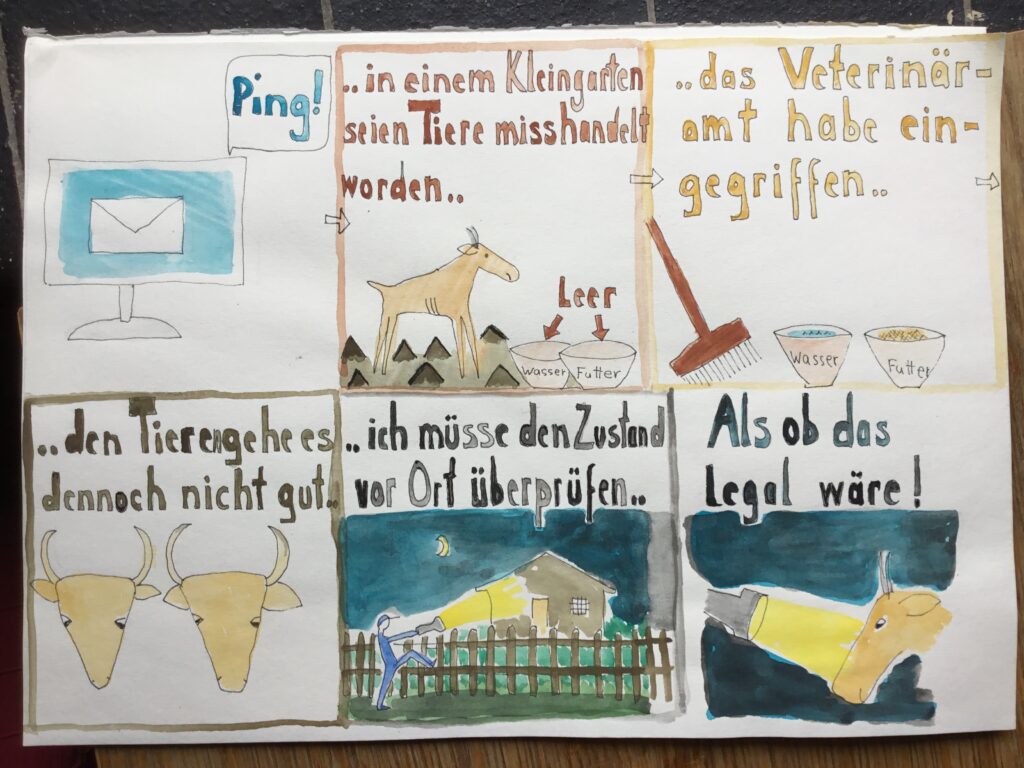 Ping!
..in einem Kleingarten
seien Tiere misshandelt
worden..
Leer
Wasser
Futter
..das Veterinär-
amt habe ein-
gegriffen..
Wasser
Futter
..den Tieren gehe es
dennoch nicht gut..
..ich müsse den Zustand
vor Ort überprüfen..
Als ob das
Legal wäre!